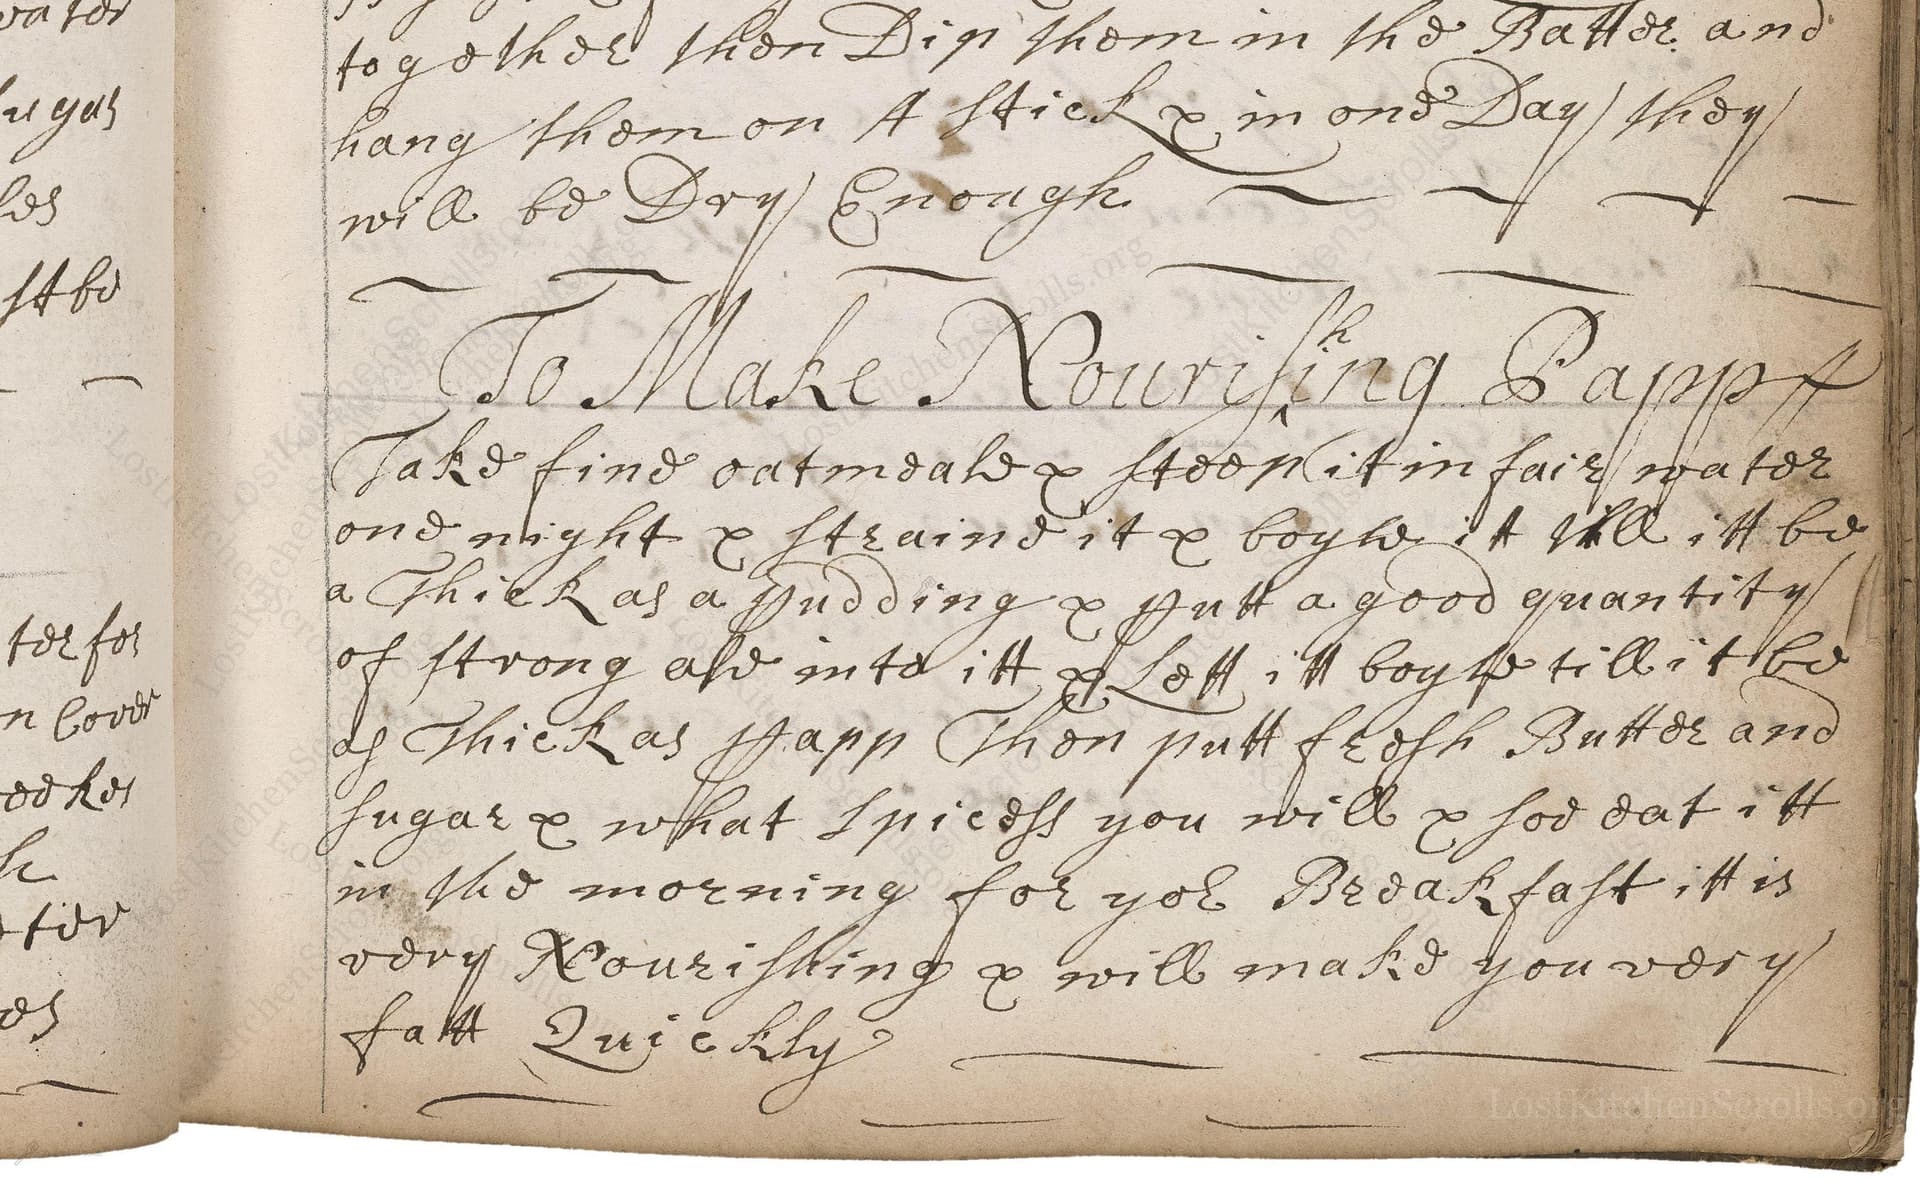 water
ugas
les
st be
ter for
n Cover
eekes
h
ter
es
together then Dip them in the Batter and
hang them on A stick & in one Day they
will be Dry Enough
To Make Nourishing Papp
Take fine oatmeale & steep it in fair water
one night & straine it & boyle itt till itt be
a Thick as a pudding & putt a good quantity
of strong ale into itt & Lett itt boyle till it be
as Thick as papp Then putt fresh Butter and
sugar & what spicess you will & soe eat itt
in the morning for yor Breakfast itt is
very Nourishing & will make you very
fatt Quickly
LostKitchenScrolls.org